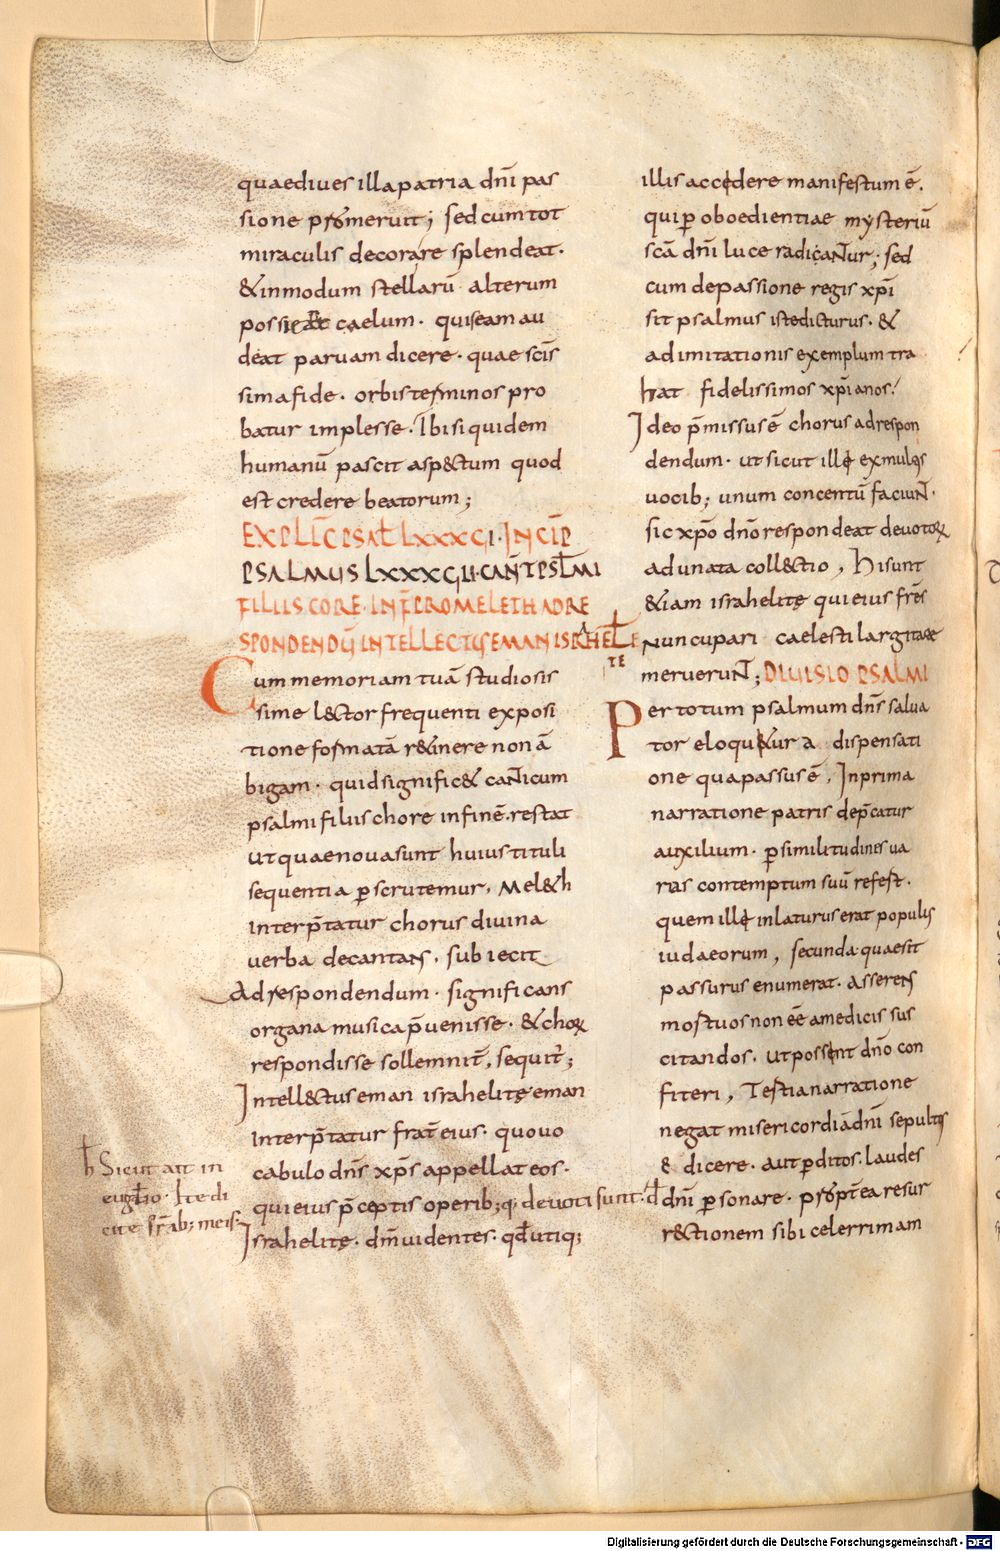 quaediues illa patria dn̄i pas
sione promeruit; sed cum tot
miraculis decorare splendeat.
& in modum stellarū alterum
possi caelum. quis eam au
deat paruam dicere. quae scīs
sima fide. orbis terminos pro
batur implesse. Ibi siquidem
humanū pascit asp&tum quod
est credere beatorum;
EXPLIC̄ PSAŁ LXXXVI. INCIP̄
PSALMUS LXXXVII. CANT̄ PSŁMI
FILIIS CORE. IN F̄ PRO MELETH AD RE
SPONDENDŪ INTELLECTUS EMAN ISRAHELI
TE
Cum memoriam tuā studiosis
sime l&tor frequenti exposi
tione formatā r&inere non ā
bigam. quid signific& canticum
psalmi filiis chore in finē. restat
ut quae noua sunt huius tituli
sequentia ꝑscrutemur. Mel&h
interp̄tatur chorus diuina
uerba decantans. subiecit
Ad respondendum. significans
organa musica p̄uenisse. & choꝝ
respondisse sollemnit̄, sequit̄;
Intell&tus eman israhelitę eman
interp̄tatur frat̄ eius. quo uo
cabulo dn̄s xp̄s appellat eos.
qui eius p̄ceptis operib; q; deuoti sunt. đ
ħ Sicut ait in
euḡlio. Ite di
cite fr̄ab; meis.
Israhelitę. dm̄ uidentes. qđ utiq;
illis accedere manifestum ē.
qui ꝑ oboedientiae mysteriū
scā dn̄i luce radicantur; sed
cum de passione regis xp̄i
sit psalmus iste dicturus. &
ad imitationis exemplum tra
hat fidelissimos xp̄ianos.
Ideo p̄missus ē chorus ad respon
dendum. ut sicut ille ex mulęs
uocib; unum concentū faciunt.
sic xp̄o dn̄o respondeat deuotoꝝ
adunata coll&tio, Hi sunt
&iam israhelitę qui eius fr̄es
nuncupari caelesti largitate
meruerunt; DIUISIO PSALMI
Per totum psalmum dn̄s salua
tor eloqu&ur a dispensati
one qua passus ē, In prima
narratione patris dep̄catur
auxilium. ꝑ similitudines ua
rias contemptum suū refert.
quem ille inlaturus erat populus
iudaeorum, secunda quae sit
passurus enumerat. asserens
mortuos non ēē a medicis sus
citandos. ut possent dn̄o con
fiteri, Tertia narratione
negat misericordiā dn̄i sepultos
& dicere. aut ꝑditos. laudes
dn̄i ꝑsonare. propt̄ea resur
r&tionem sibi celerrimam
Digitalisierung gefördert durch die Deutsche Forschungsgemeinschaft - DFG